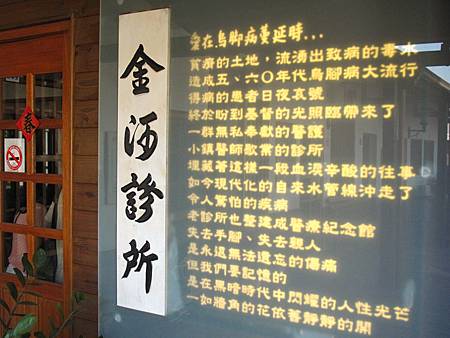 春
金河診所
愛在烏脚病蔓延時...
貧瘠的土地，流湧出致病的毒水
造成五、六○年代烏脚病大流行
得病的患者日夜哀號
終於盼到基督的光照臨帶來了
一群無私奉獻的醫護
小鎮醫師歇業的診所
埋藏著這樣一段血淚辛酸的往事
如今現代化的自來水管線沖走了
令人驚怕的疾病
老診所也整建成醫療紀念館
失去手腳、失去親人
是永遠無法遺忘的傷痛
但我們要記憶的
是在黑暗時代中閃耀的人性光芒
一如牆角的花依舊靜靜的開